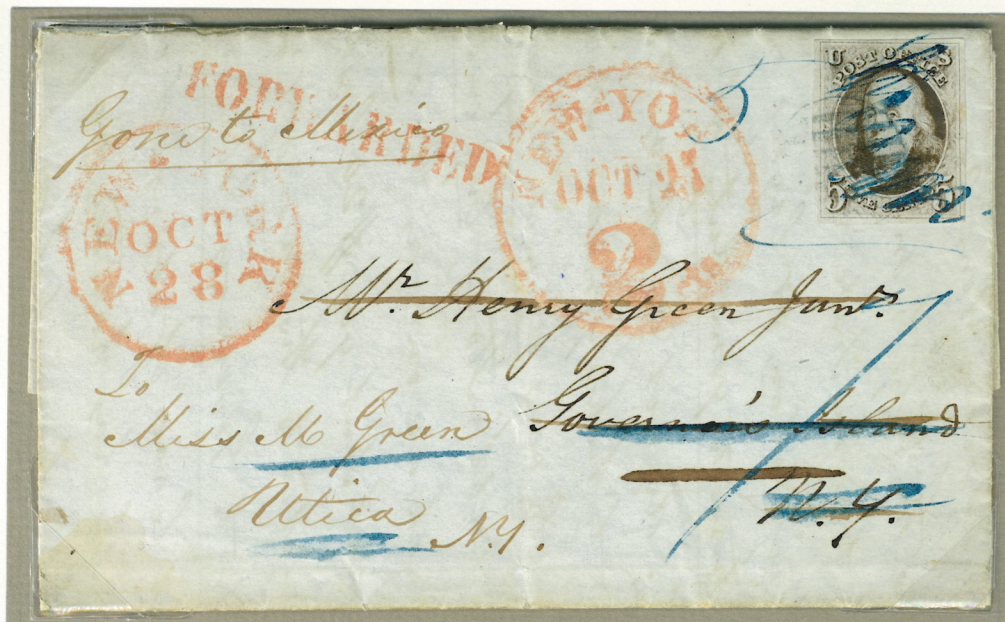 FORWARDED
Gone to Mexico
NEW-YORK
OCT
28
NEW-YOR
OCT 27
2
cts
5
U S
POST OFFICE
FIVE CENTS
5 5
Mr. Henry Green Junr.
Governor's Island
N.Y.
To
Miss M Green
Utica
N.Y.